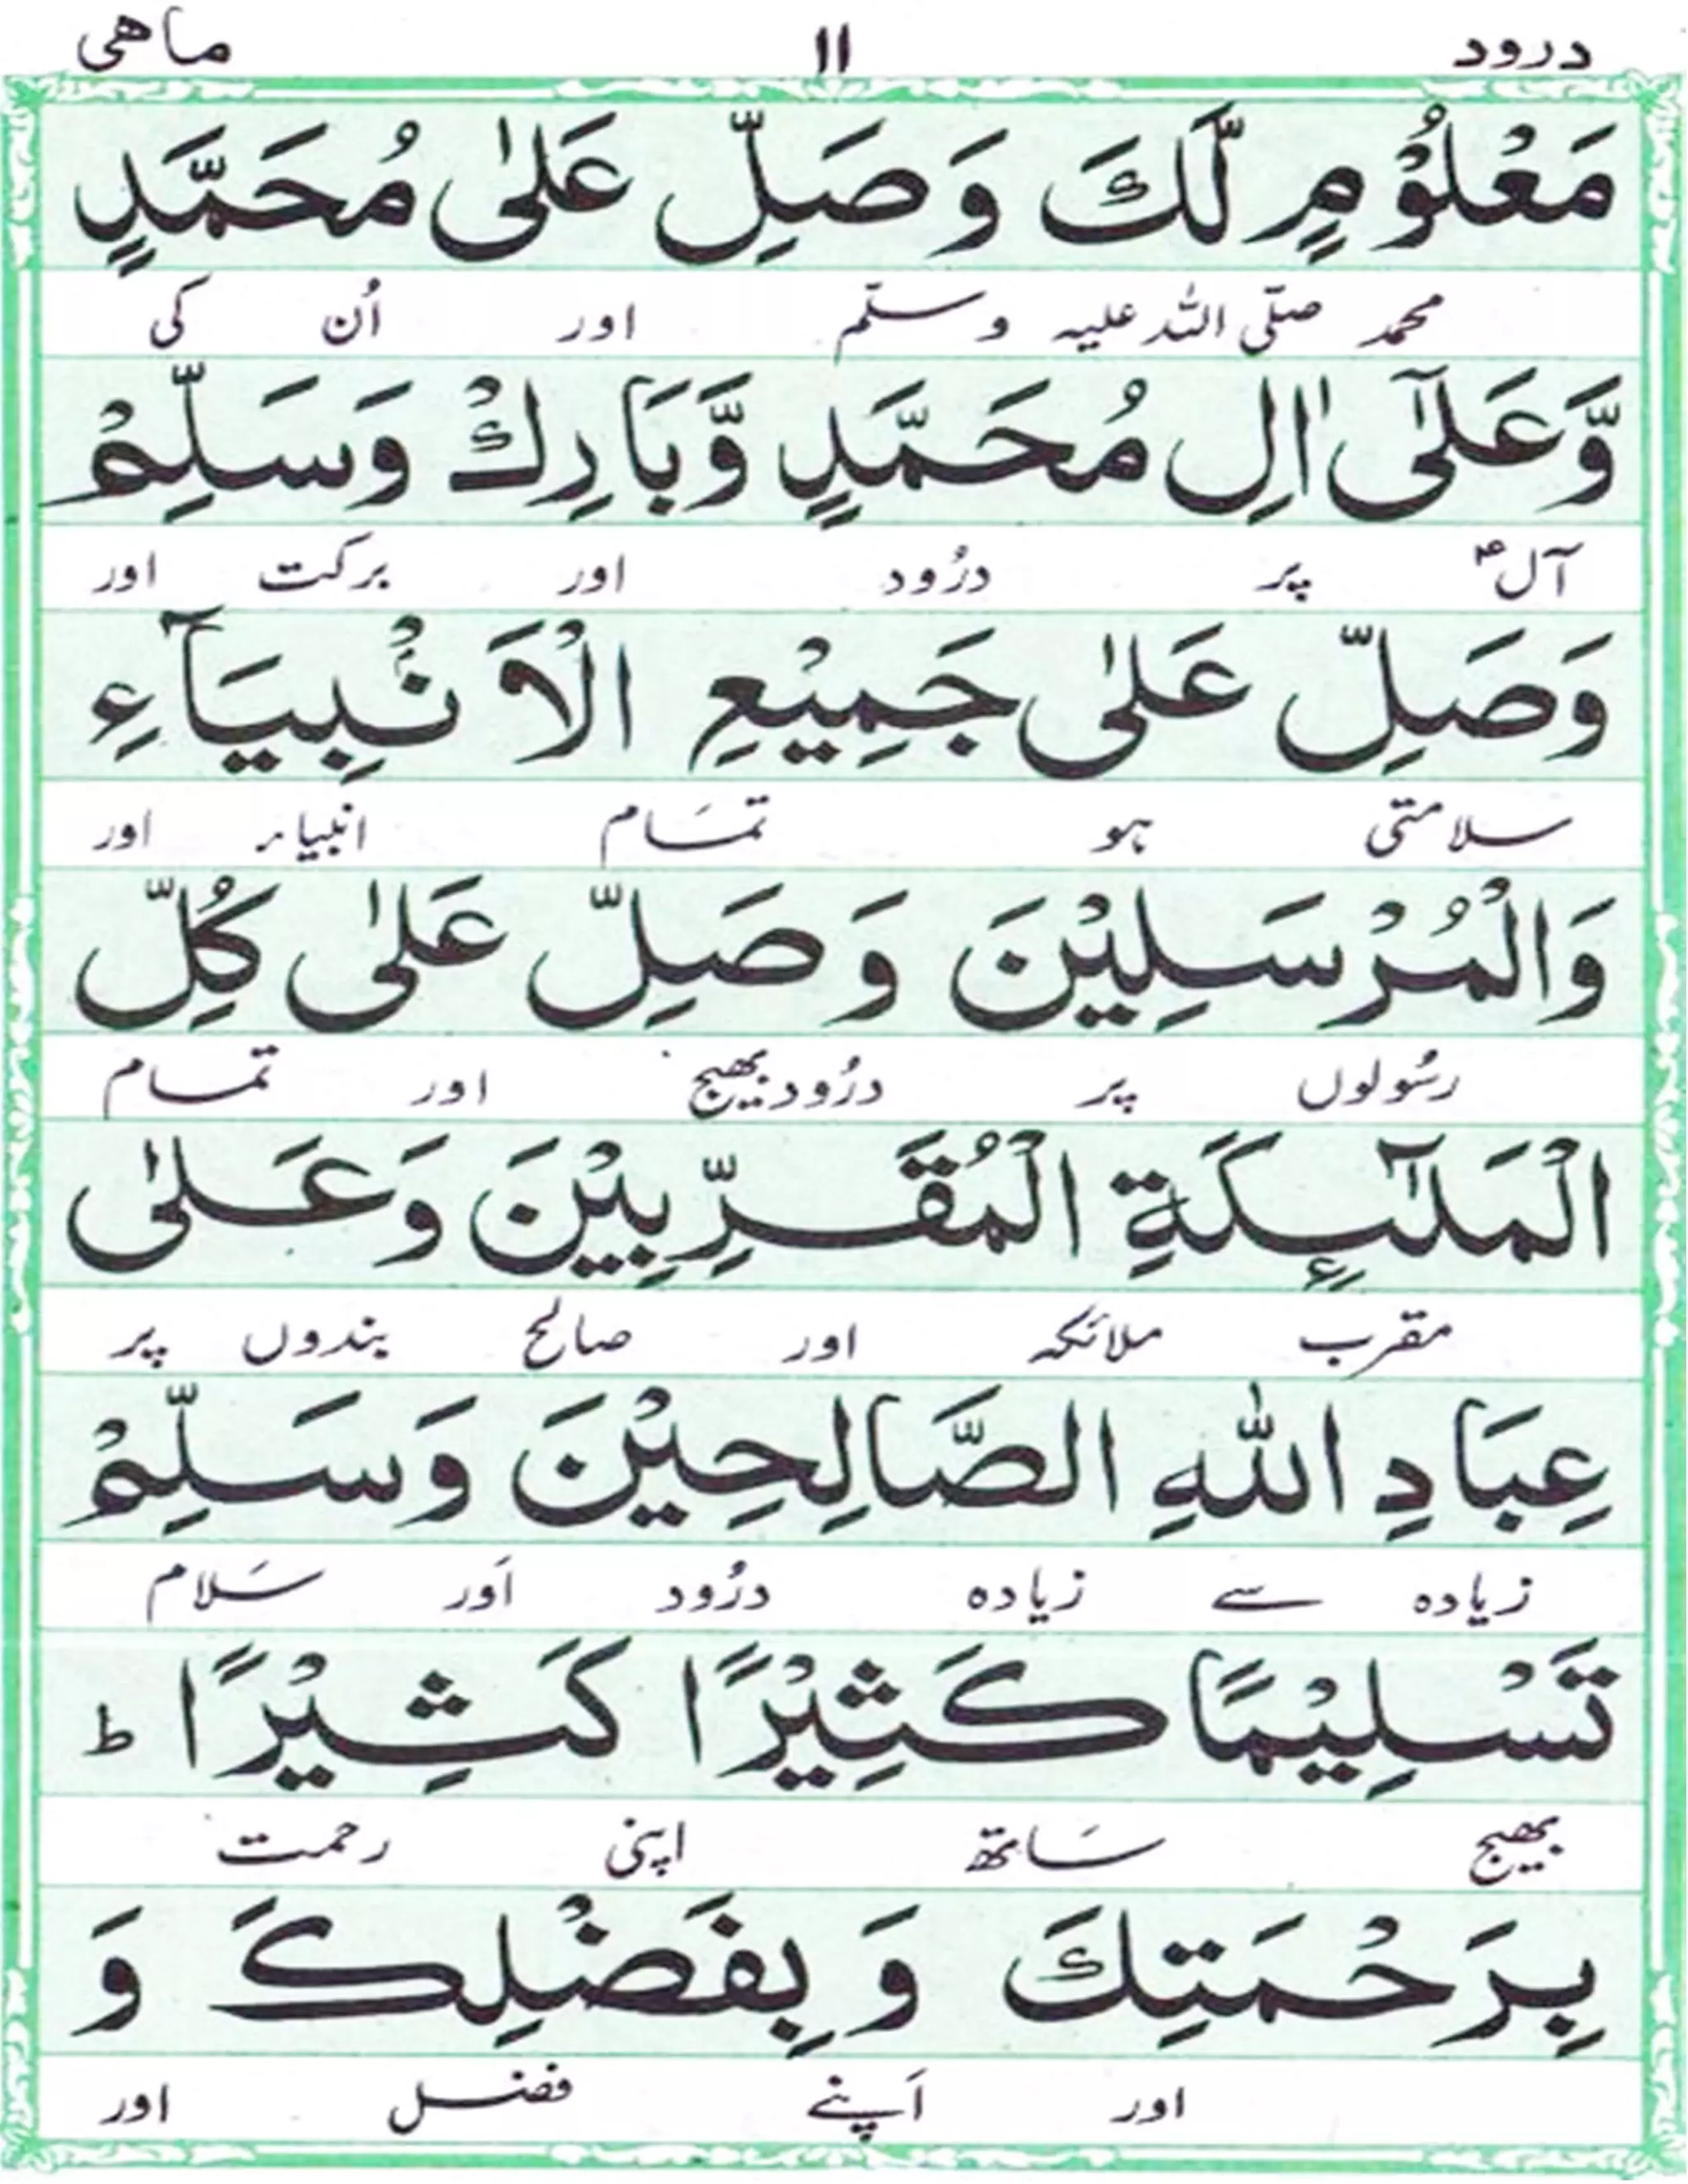 درود ۱۱ ماهی
مَعْلُوْمٍ لَّكَ وَصَلِّ عَلٰى مُحَمَّدٍ
محمد صلّی اللہ علیہ وسلّم اور اُن کی
وَّعَلٰٓى اٰلِ مُحَمَّدٍ وَّبَارِكْ وَسَلِّمْ
آلؑ پر درُود اور برکت اور
وَصَلِّ عَلٰى جَمِيْعِ الْاَنْۢبِيَآءِ
سلامتی ہو تمَام انبیاء اور
وَالْمُرْسَلِيْنَ وَصَلِّ عَلٰى كُلِّ
رسُولوں پر درُود بھیج اور تمام
الْمَلٰٓئِكَةِ الْمُقَرِّبِيْنَ وَعَلٰى
مقرب ملائکہ اور صالح بندوں پر
عِبَادِ اللّٰهِ الصَّالِحِيْنَ وَسَلِّمْ
زیادہ سے زیادہ درُود اَور سَلام
تَسْلِيْمًا كَثِيْرًا كَثِيْرًا ط
بھیج سَاتھ اپنی رحمت
بِرَحْمَتِكَ وَبِفَضْلِكَ وَ
اور اَپنے فضل اور